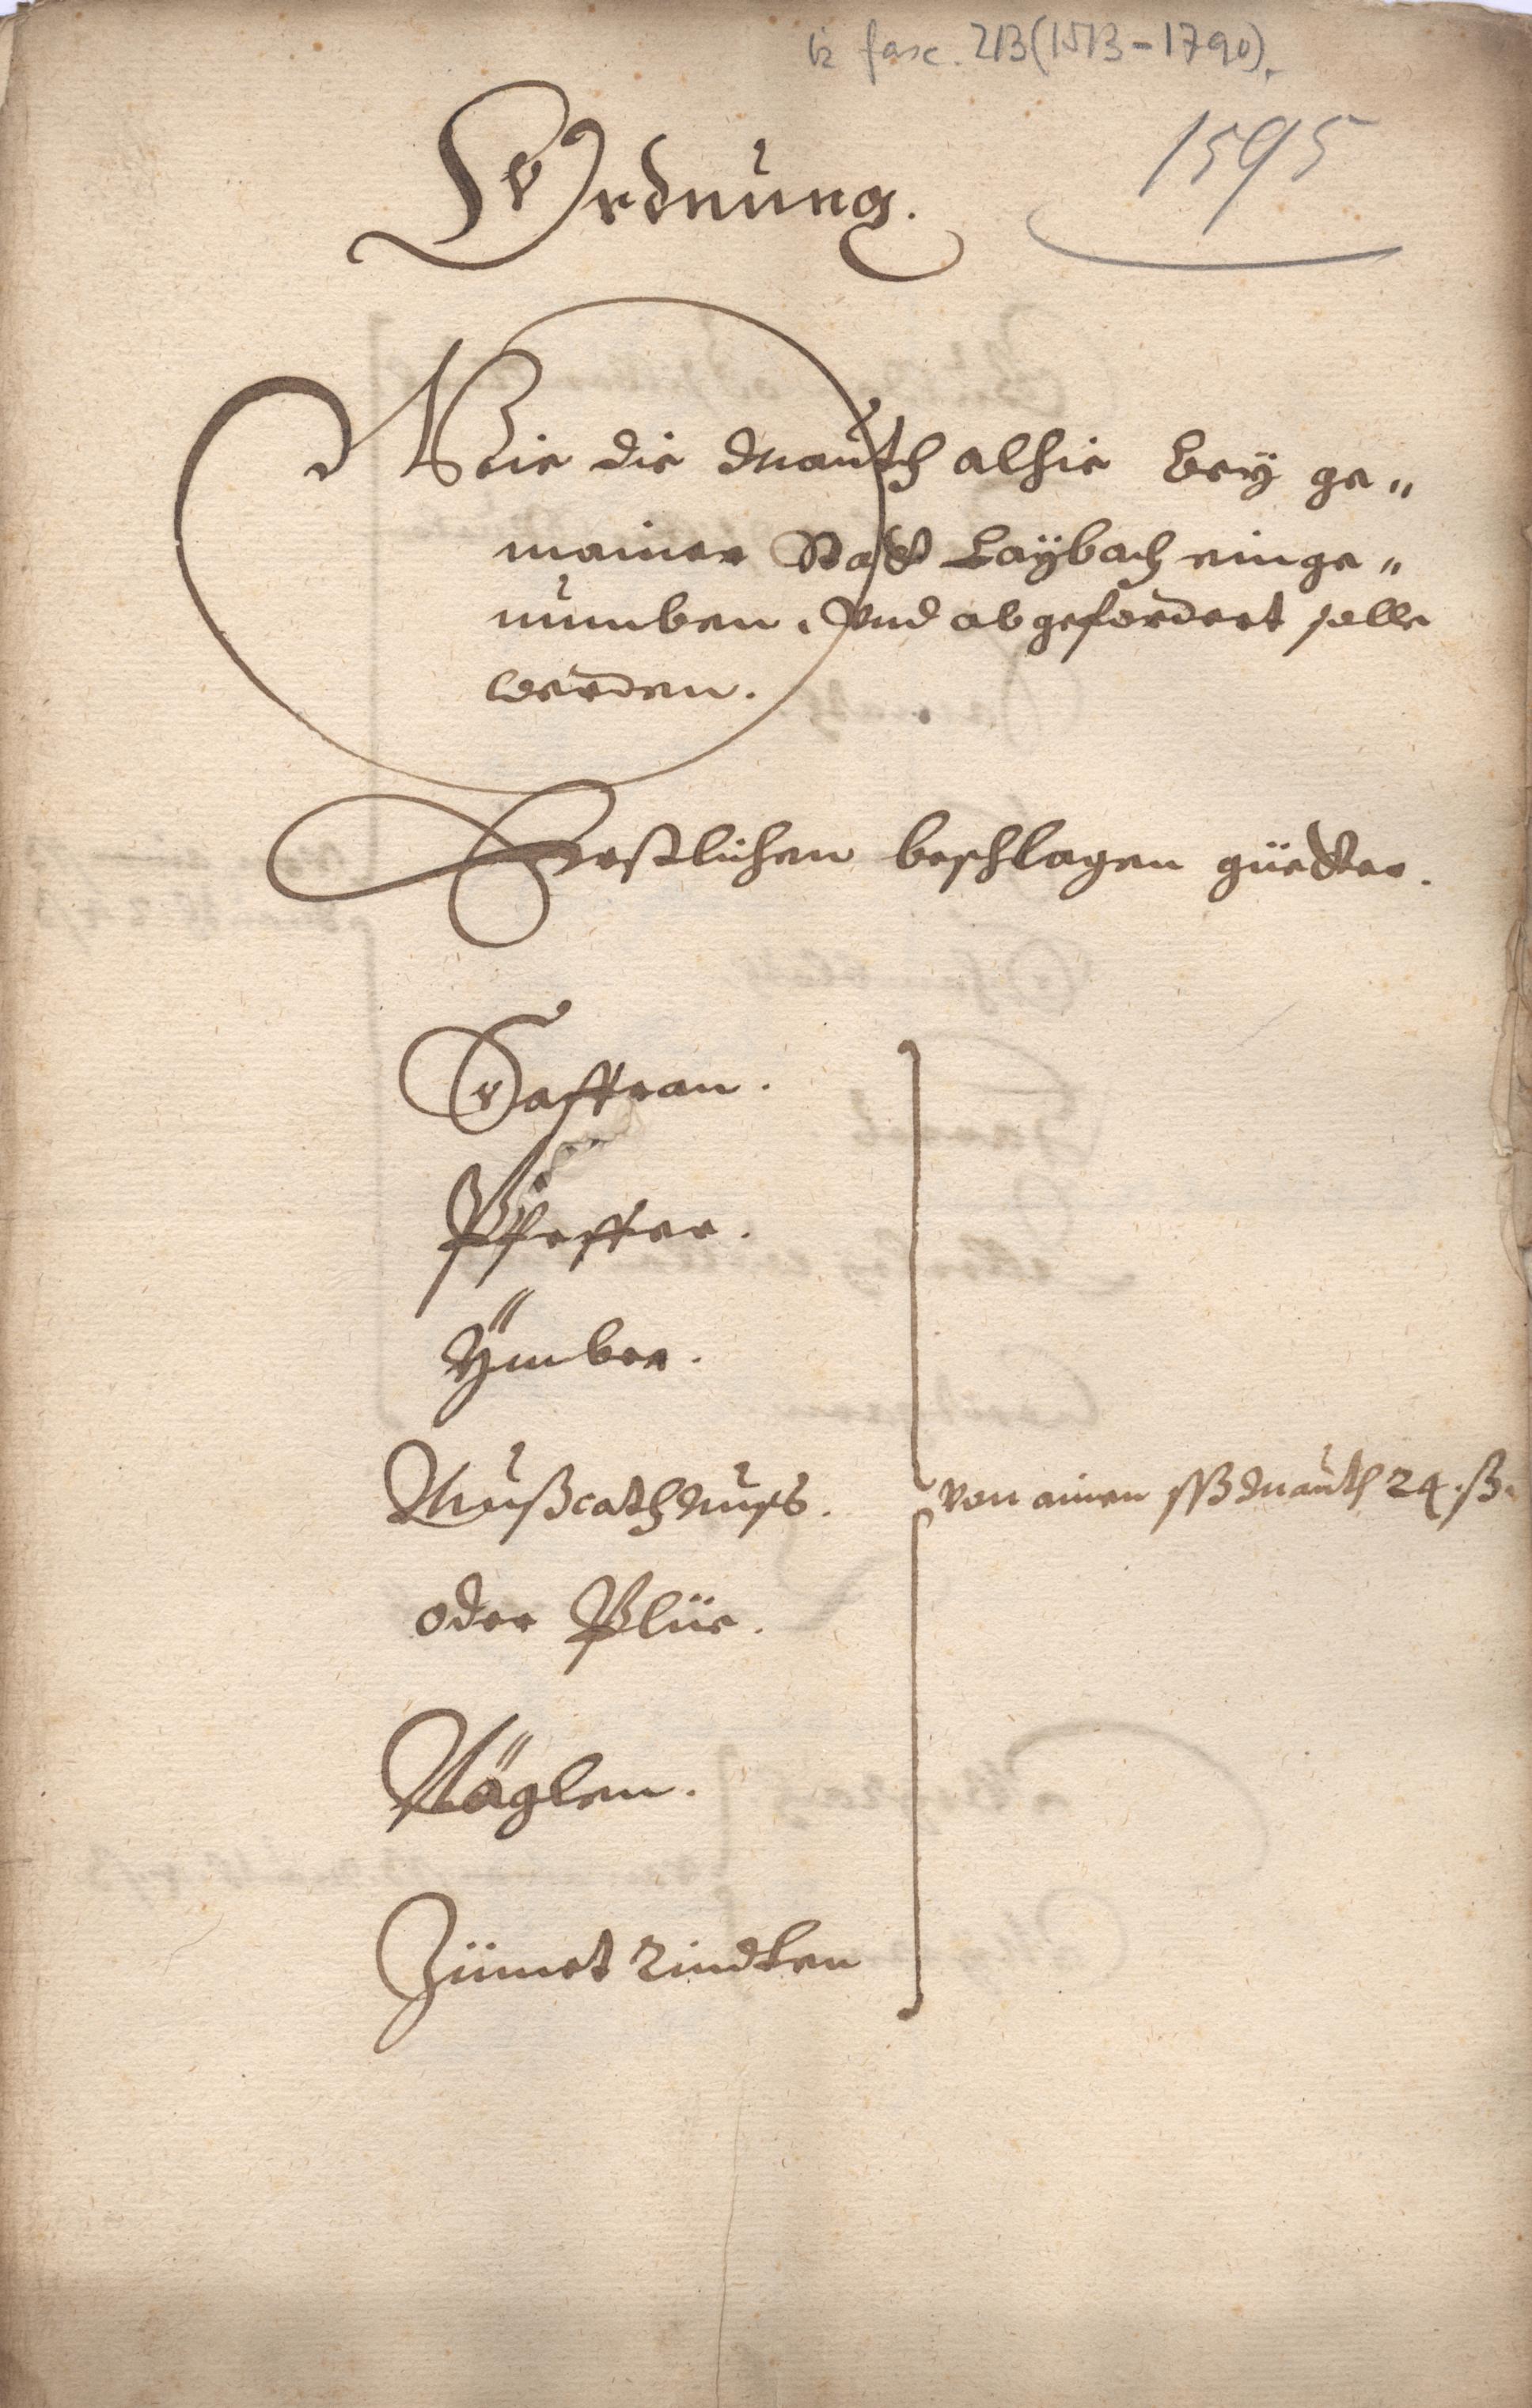 iz fasc. 213 (1513-1790).
1595
Ordnung.
Wie die Mauth alhie bey ge„
mainer Stat Laÿbach einge„
numben, Vnd abgefordert solle
werden.
Erstlichen beschlagen güetter.
Saffran.
Pfeffer.
Ÿmber.
Mußcathnuß.
oder Plüe.
Näglen.
Zimet Rindten
von ainen ßß Mauth 24 .ß.